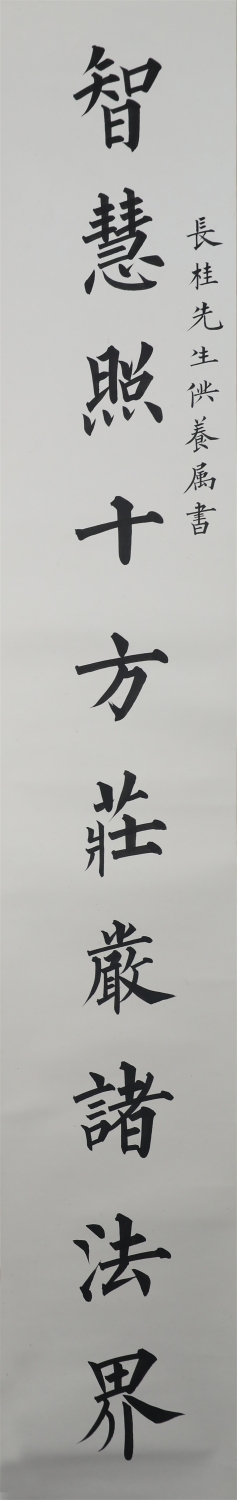 長桂先生供養属書
智慧照十方莊嚴諸法界